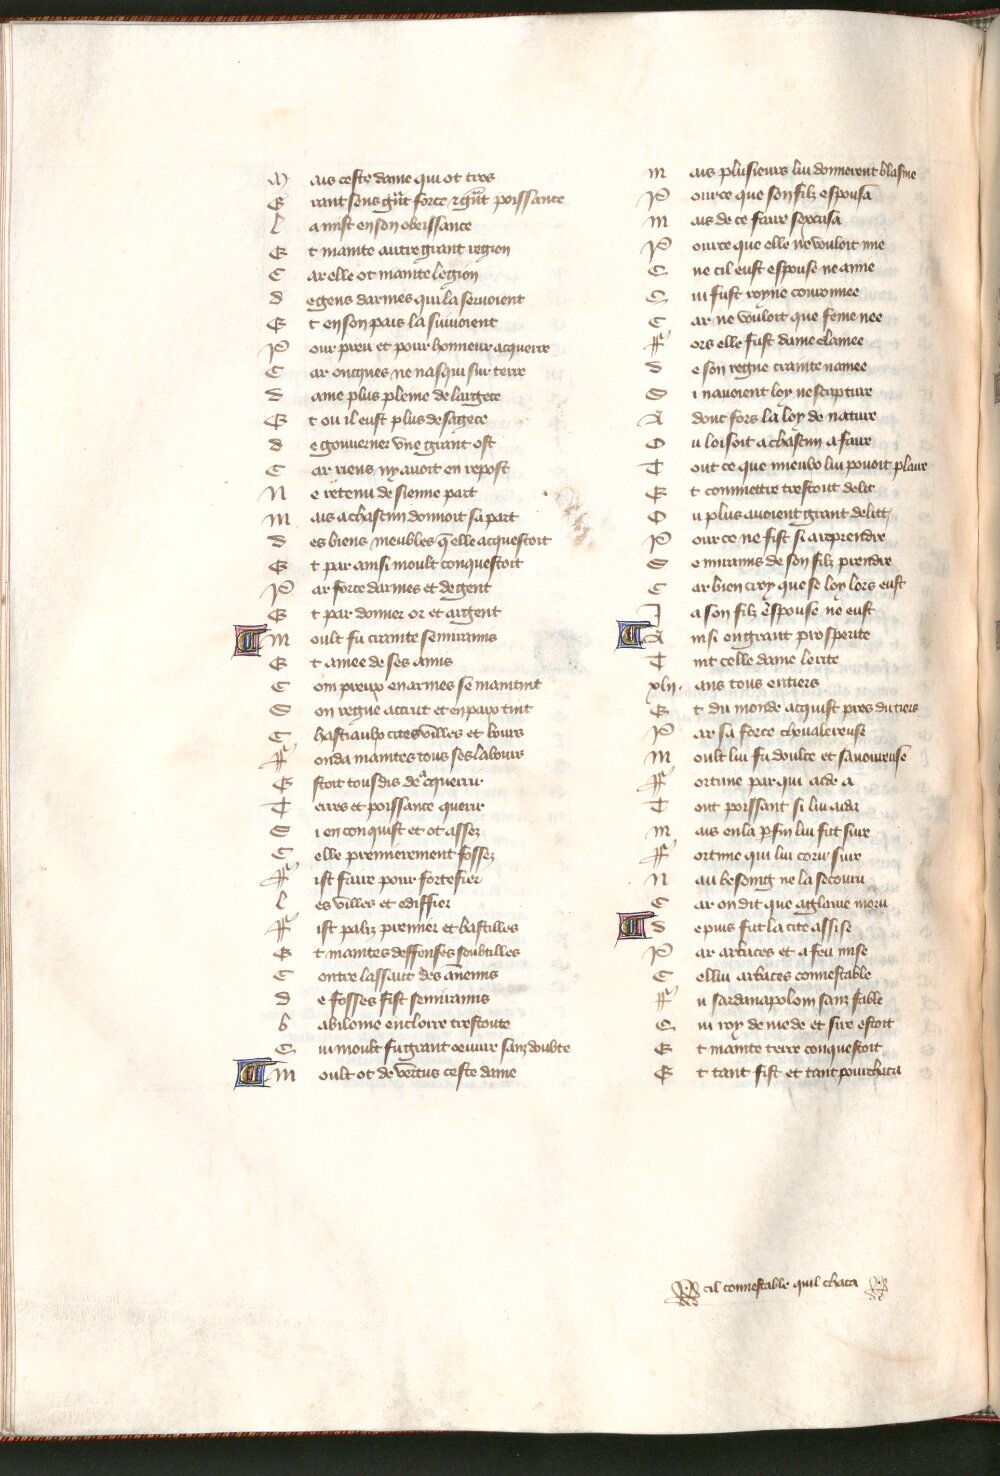 M ais ceste dame qui ot tres
G rant sens gn̄t force ⁊ gn̄t poissance
L a mist en son obeissance
E t mainte autre grant region
C ar elle ot mainte legion
d e gens darmes qui la seruoient
E t en son pais la suiuoient
P our preu et pour honneur acquerre
C ar oncques ne nasqui sur terre
d ame plus pleine de largece
E t ou il eust plus de sagece
d e gouuerner vne grant ost
C ar riens ny auoit en repost
N e retenu de sienne part
M ais a chascun donnoit sa part
d es biens meubles q̄ elle acquestoit
E t par ainsi moult conquestoit
P ar force darmes et de gent
E t par donner or et argent
M oult fu crainte semiramis
E t amee de ses amis
C om preux en armes se maintint
S on regne accrut et en paix tint
C hastiaulx citez villes et bours
ff onda maintes tous ses labours
E stoit tousdis de acquerir
T erres et poissance querir
S i en conquist et ot assez
C elle premierement fossez
ff ist faire pour fortefier
L es villes et ediffier
ff ist paliz premier et bastilles
E t maintes deffenses soubtilles
C ontre lassaut des anemis
d e fosses fist semiramis
b abiloine encloirre trestoute
C ui moult fu grant oeuure sanz doubte
M oult ot de vertus ceste dame
M ais plusieurs lui donnerent blasme
P our ce que son filz espousa
M ais de ce faire sexcusa
P our ce que elle ne vouloit mie
C ne cil eust espouse ne amie
C ui fust royne couronnee
C ar ne vouloit que feme nee
ff ors elle fust dame clamee
d e son regne crainte namee
S i nauoient loy ne scripture
A donc fors la loy de nature
O u loisoit a chascun a faire
T out ce que mieulx lui pouoit plaire
E t commettre trestout delit
O u plus auoient grant delitt
P our ce ne fist si a reprendre
S emiramis de son filz prendre
C ar bien croy que se loy lors eust
J a son filz espouse ne eust
A insi en grant prosperite
T int celle dame lerite
xlii. ans tous entiers
E t du monde acquist pres du tiers
P ar sa force cheualereuse
M oult lui fu doulce et sauoureuse
ff ortune par qui aide a
T ont poissant si lui aida
M ais en la p̄fin lui fut sure
ff ortune qui lui couru sure
N au besoing ne la secouru
C ar on dit que a glaiue moru
d epuis fut la cite assise
P ar arbaces et a feu mise
C ellui arbaces connestable
ff u sardanapolom sanz fable
C ui roy de mede et sire estoit
E t mainte terre conquestoit
E t tant fist et tant pourchaca
cil connestable quil chaca